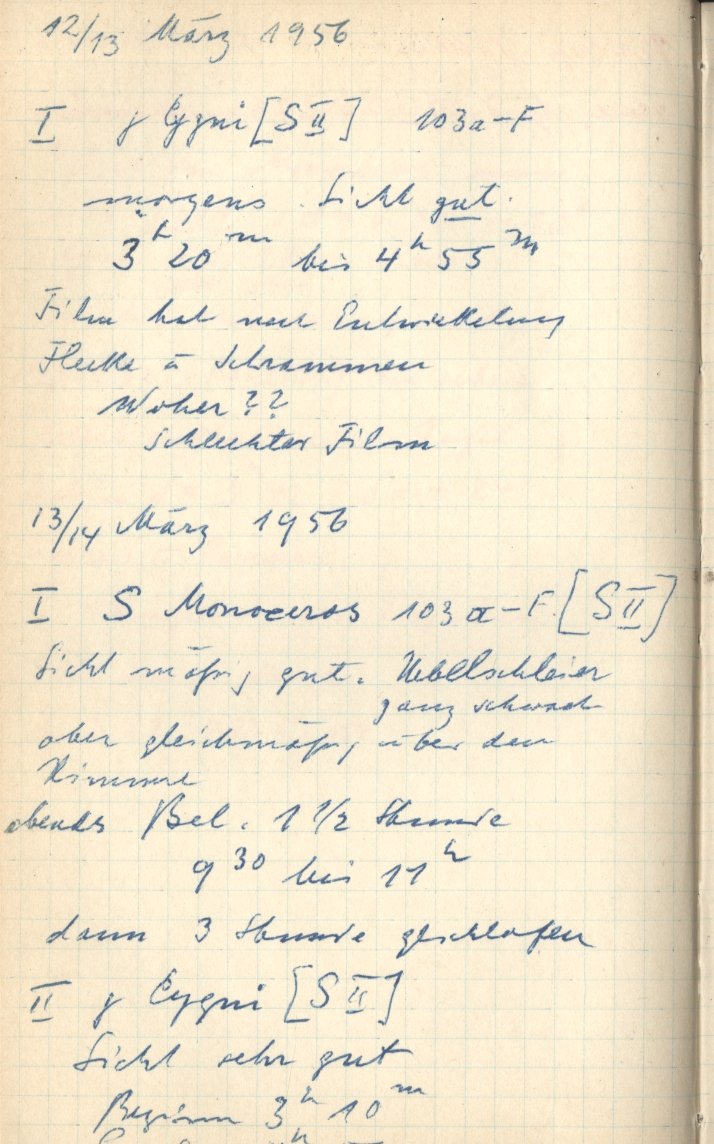 12/13 März 1956
I γ Cygni [S II] 103a-F
morgens. Sicht gut.
3h 20m bis 4h 55m
Film hat nach Entwickelung
Flecke u Schrammen
Woher ??
schlechter Film
13/14 März 1956
I S Monoceros 103a-F. [S II]
Sicht mäßig gut. Nebelschleier
ganz schwach
aber gleichmäßig über den
Himmel
abends Bel. 1 1/2 Stunde
9 30 bis 11h
dann 3 Stunde geschlafen
II γ Cygni [S II]
Sicht sehr gut
Beginn 3h 10m